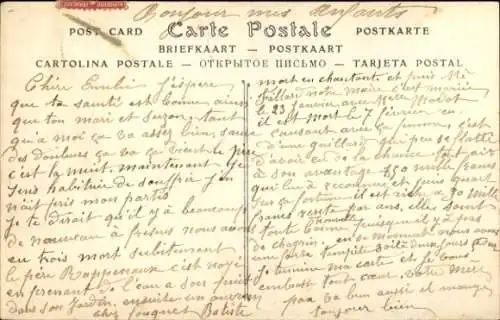 Bonjour mes Enfants
POST CARD Carte Postale POSTKARTE
BRIEFKAART — POSTKAART
CARTOLINA POSTALE — ОТКРЫТОЕ ПИСЬМО — TARJETA POSTAL
Chère Emilie J'espère
que ta santé est bonne ainsi
que ton mari et Suzon, tant
qu'a moi ça va assez bien, sauf
des douleurs ça va ça vient le pire
c'est la nuit, maintenant Je
suis habituée de souffrir J'en
pris mon partis
Je te dirait qu'il y a beaucoup
de nouveau à fresnes nous avons
eu trois mort subitement
le père c'est noyé
en prenant de l'eau a son puit
dans son Jardin, ensuite un ouvrier
chez fouquet Batiste
mort en chantante et puis Mr
notre maire c'est mariée
le 23 Janvier avec Melle
il est mort le 7 février en
causant avec ça femme, c'est
d'une gaillard qui peu se flatté
d'avoir eu de la chance
à son avantage 150 mille francs
qui lui à reconnue et puis quart
sur ça fortune il est riche 30 mille
francs rente par ans, elle sont
toute bonne puisqu'il n'y a pas
de chagrin, en se moment nous avons
une forte tempête voilà deux Jours
Je termine ma carte et Je vous
embrasse tout coeur. Votre mère
papa va bien aussi et mange
toujours bien